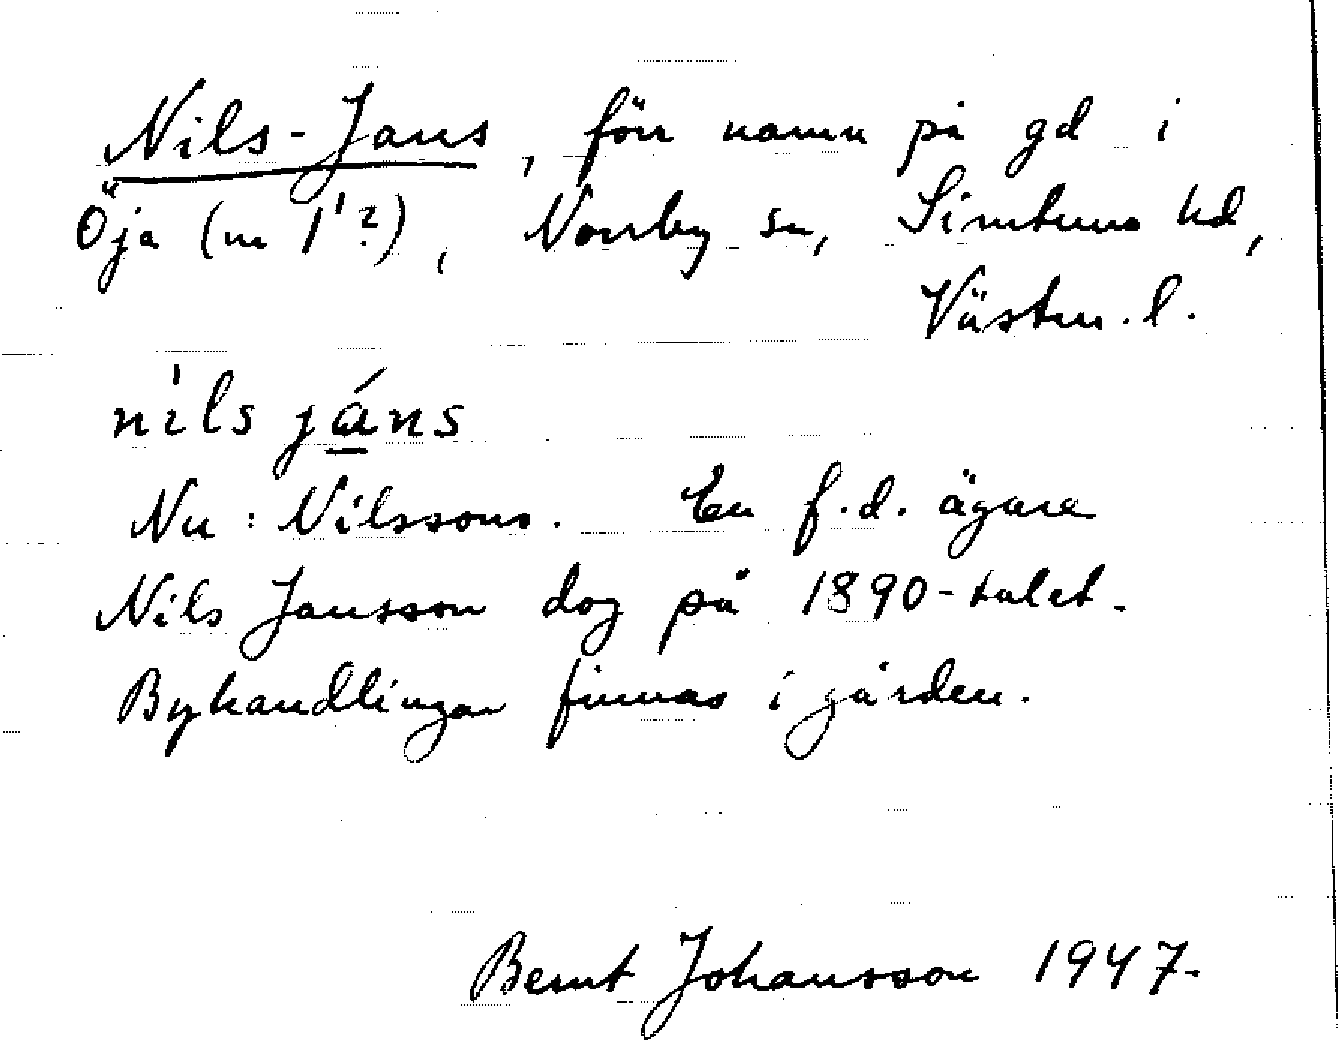 Nils-Jans, förr namn på gd i
Öja (nr 1¹?), Norrby sn, Simtuna hd,
Västm. l.
nils jáns
Nu: Nilssons. En f.d. ägare
Nils Jansson dog på 1890-talet.
Byhandlingar finnas i gården.
Bernt Johansson 1947.